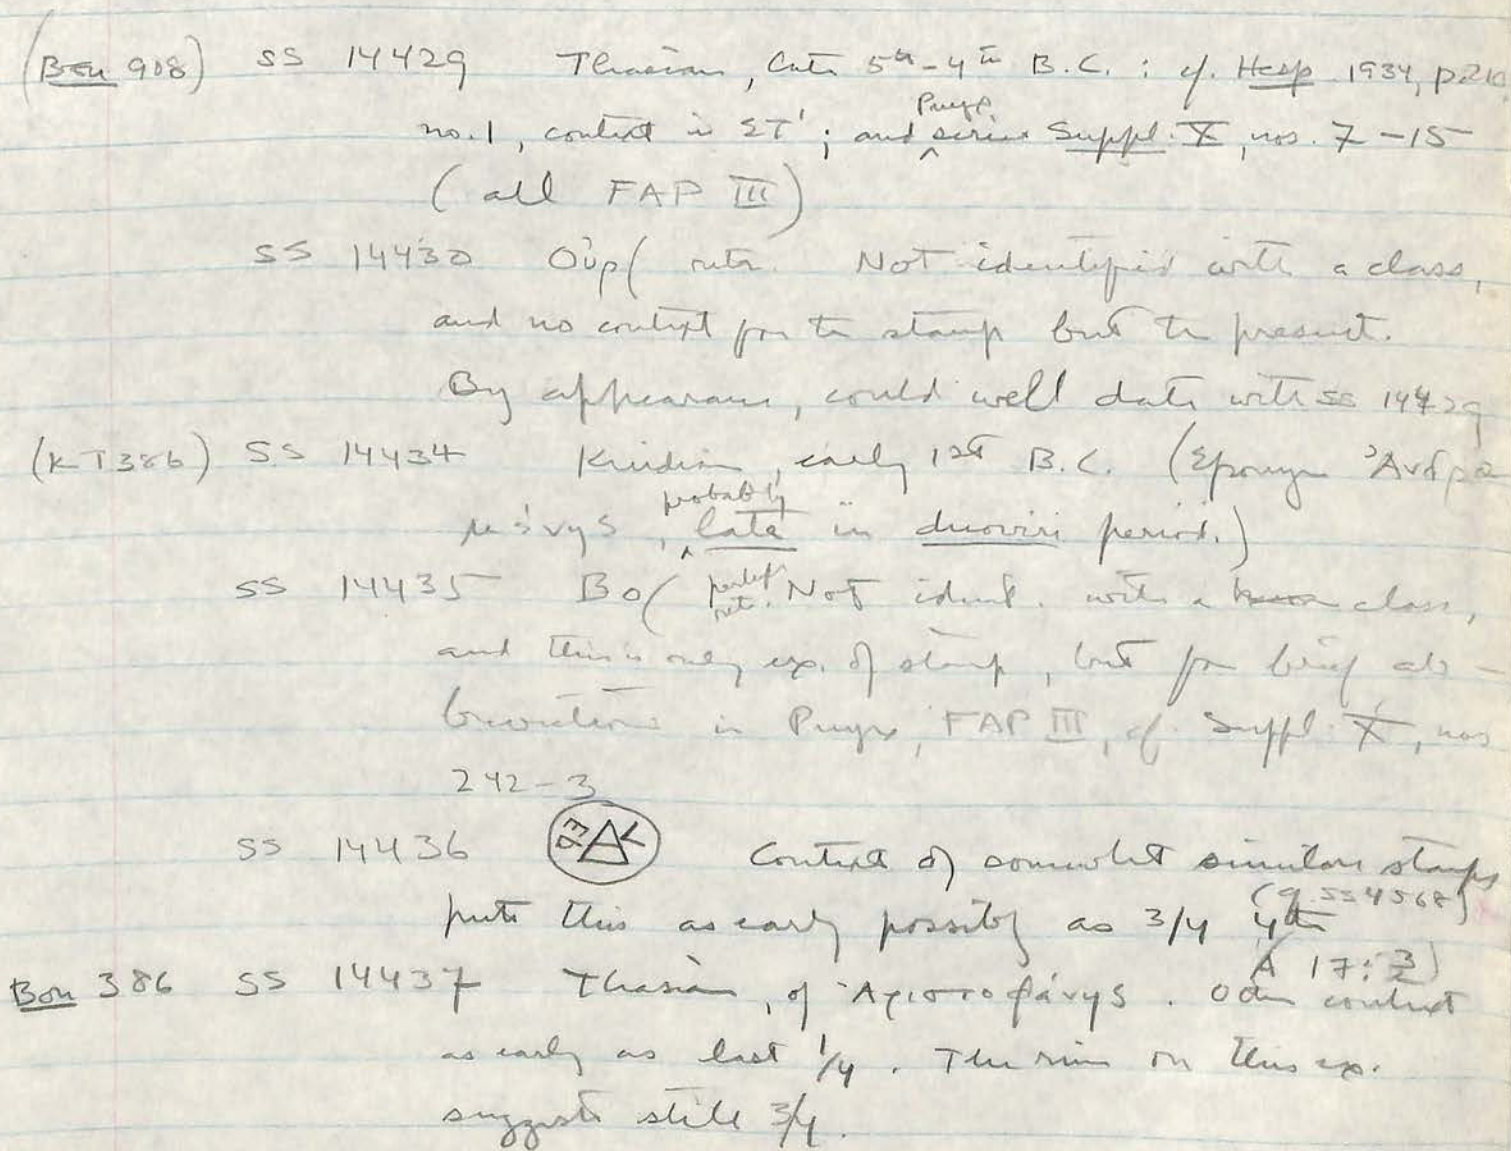 (Bon 908) SS 14429 Thasian, late 5th-4th B.C. : cf. Hesp 1934, p. 210
no. 1, context is ΣΤ' ; and Pnyx series Suppl. X, nos. 7-15
(all FAP III)
SS 14430 Οὐρ( retr. Not identified with a class,
and no context for the stamp but the present.
By appearance, could well date with SS 14429
(KT 386) SS 14434 Knidian, early 1st B.C. (Eponym Ἀνδρο
μένης, probably late in duoviri period.)
SS 14435 Βο( partly retr. Not ident. with a class,
and this is only ex. of stamp, but for brief ab-
breviations in Pnyx, FAP III, cf. Suppl. X, nos
242-3
SS 14436 Context of somewhat similar stamps
(cf. SS 4568)
puts this as early possibly as 3/4 4th
A 17:3)
Bon 386 SS 14437 Thasian, of Ἀριστοφάνης. Other context
as early as last 1/4. The rim on this ex.
suggests still 3/4.